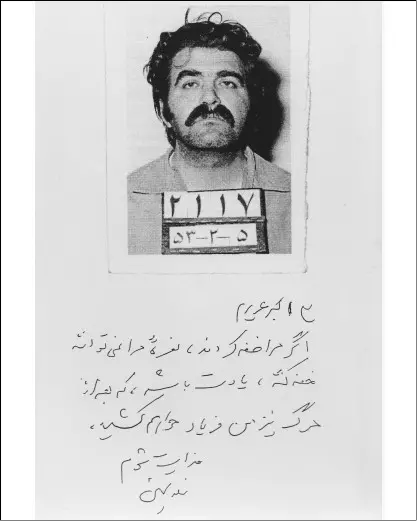 ۲۱۱۷
۵۳-۲-۵
اکبر عزیزم
اگر مرا خفه کردند، نعرهٔ مرا نمی توانند
خفه کنند، یادت باشد، که بعد از
مرگ نیز من فریاد خواهم کشید،
فدایت شوم